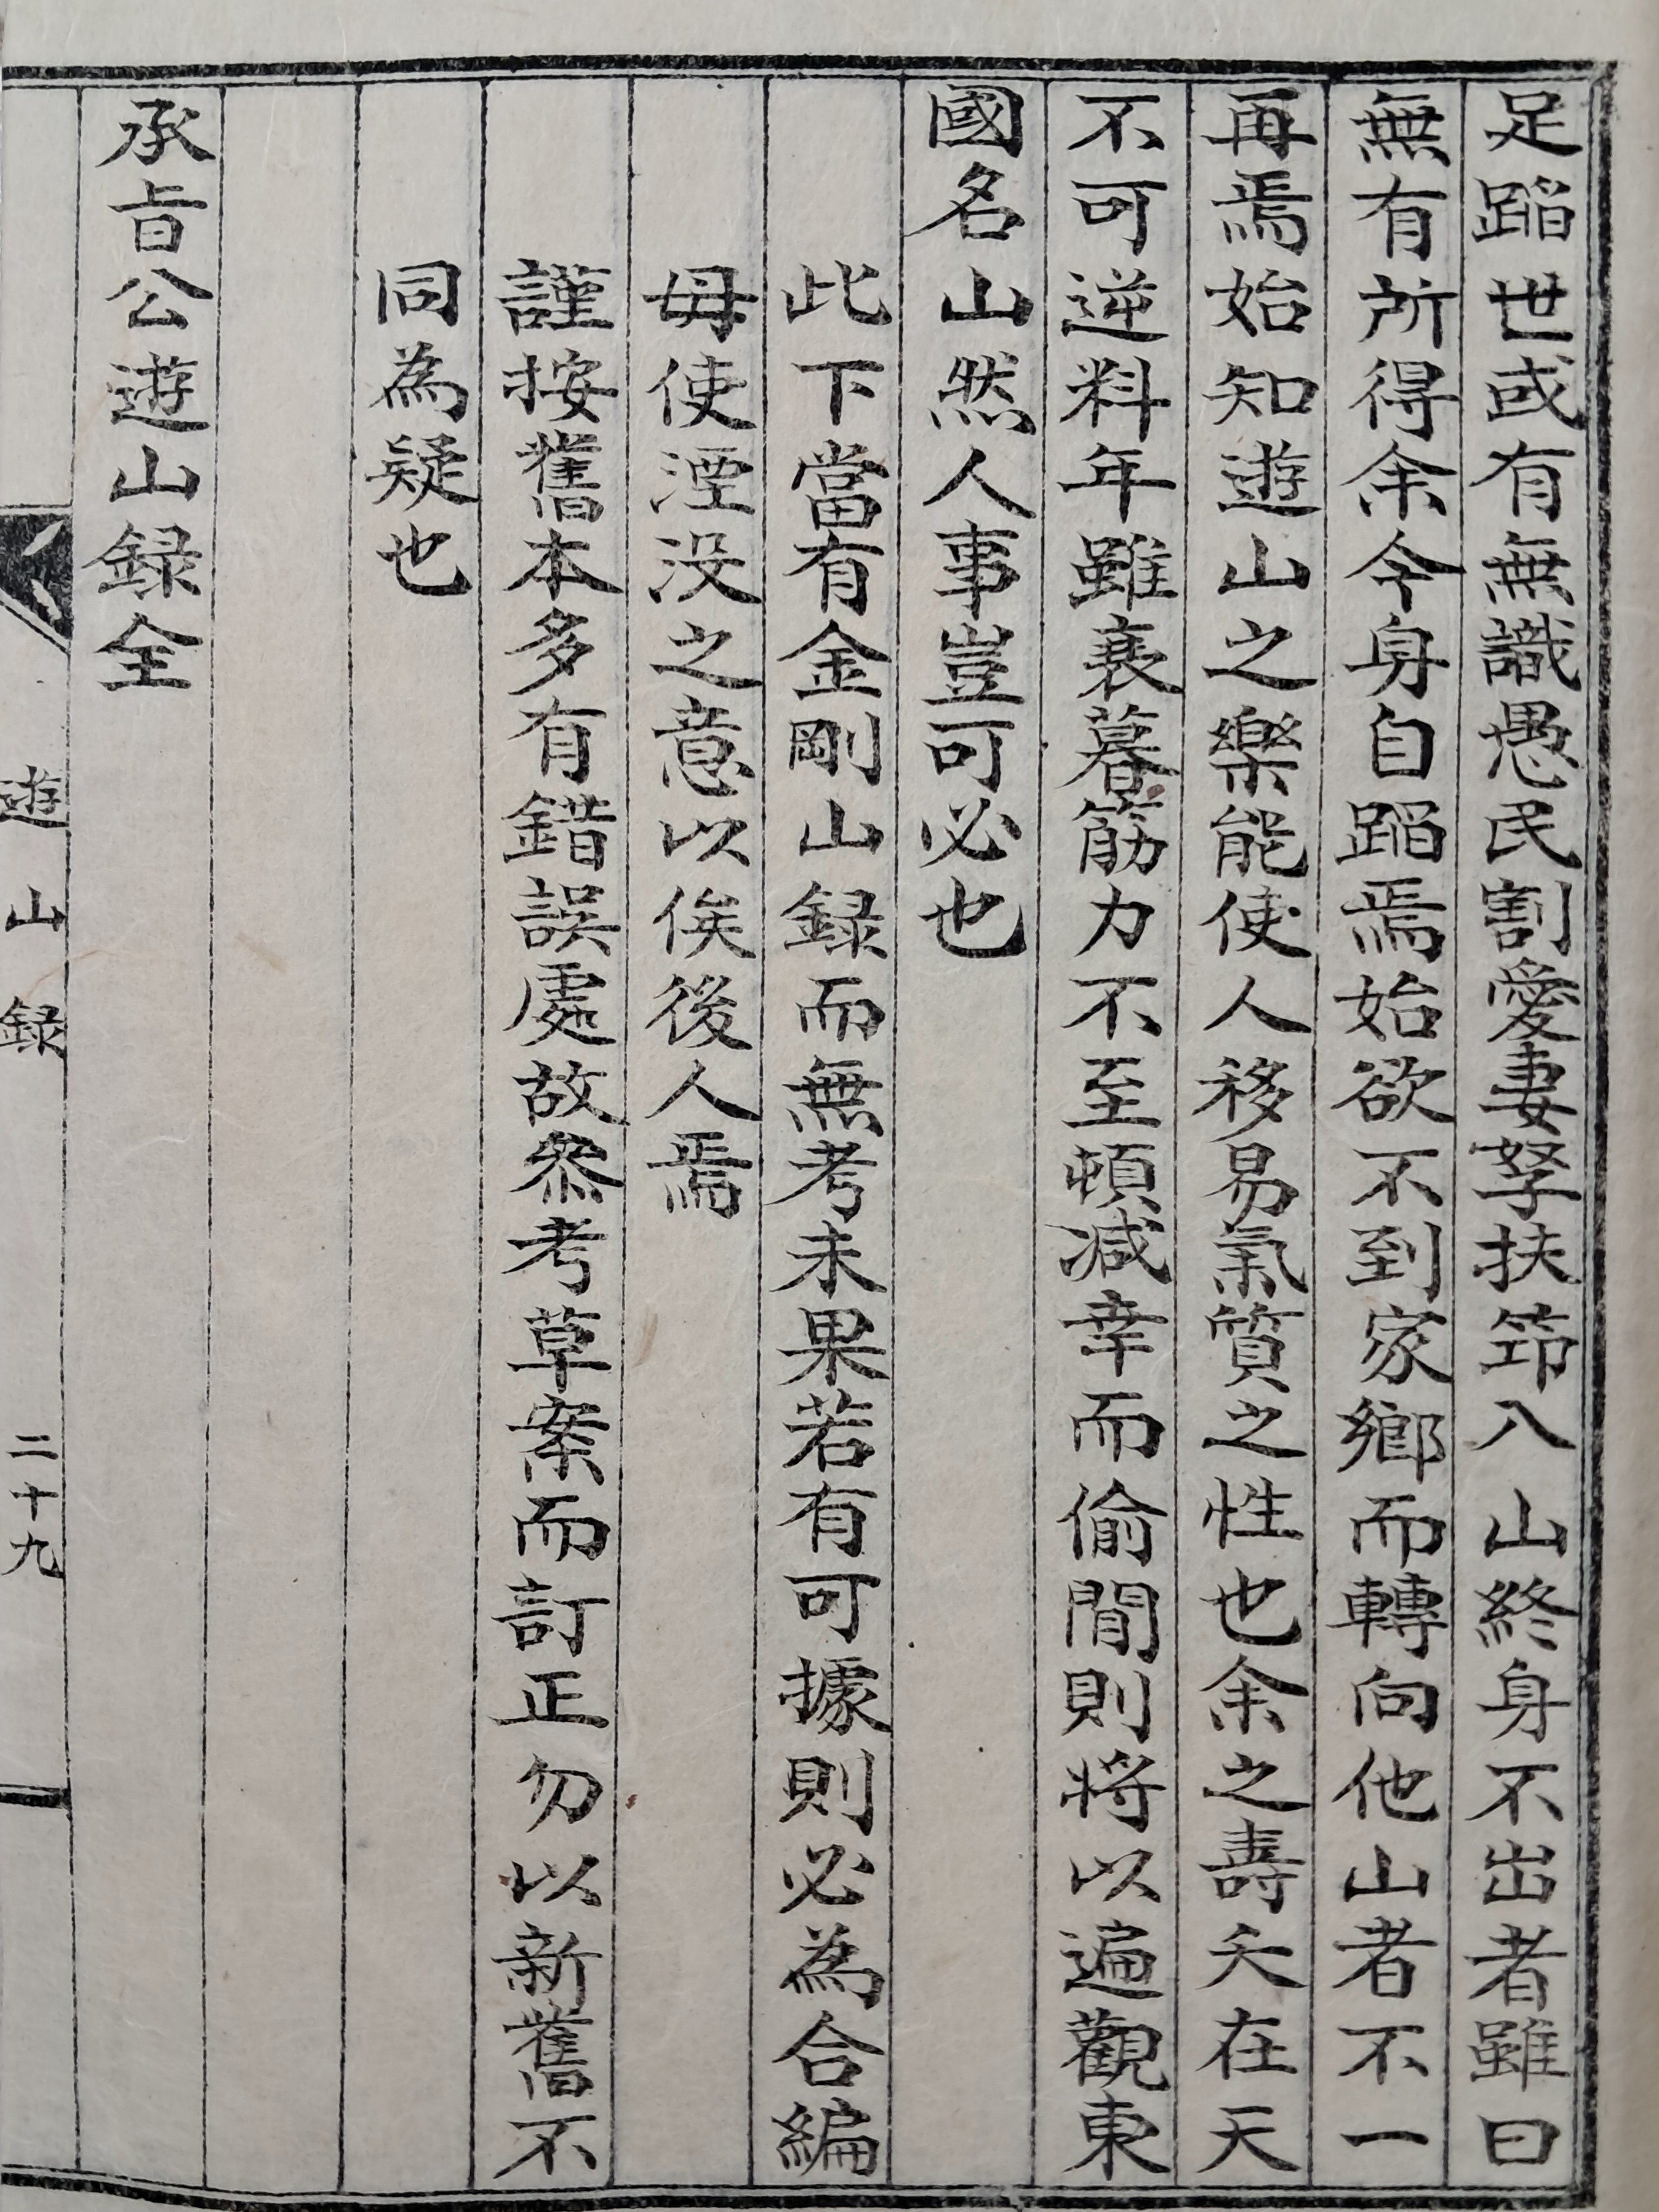 足蹈世或有無識愚民割愛妻孥扶筇入山終身不出者雖曰
無有所得余今身自蹈焉始欲不到家鄉而轉向他山者不一
再焉始知遊山之樂能使人移易氣質之性也余之壽夭在天
不可逆料年雖衰暮筋力不至頓减幸而偷閒則將以遍觀東
國名山然人事豈可必也
此下當有金剛山録而無考未果若有可據則必為合編
毋使湮没之意以俟後人焉
謹按舊本多有錯誤處故叅考草案而訂正勿以新舊不
同為疑也
承㫖公遊山録全
遊山録
二十九